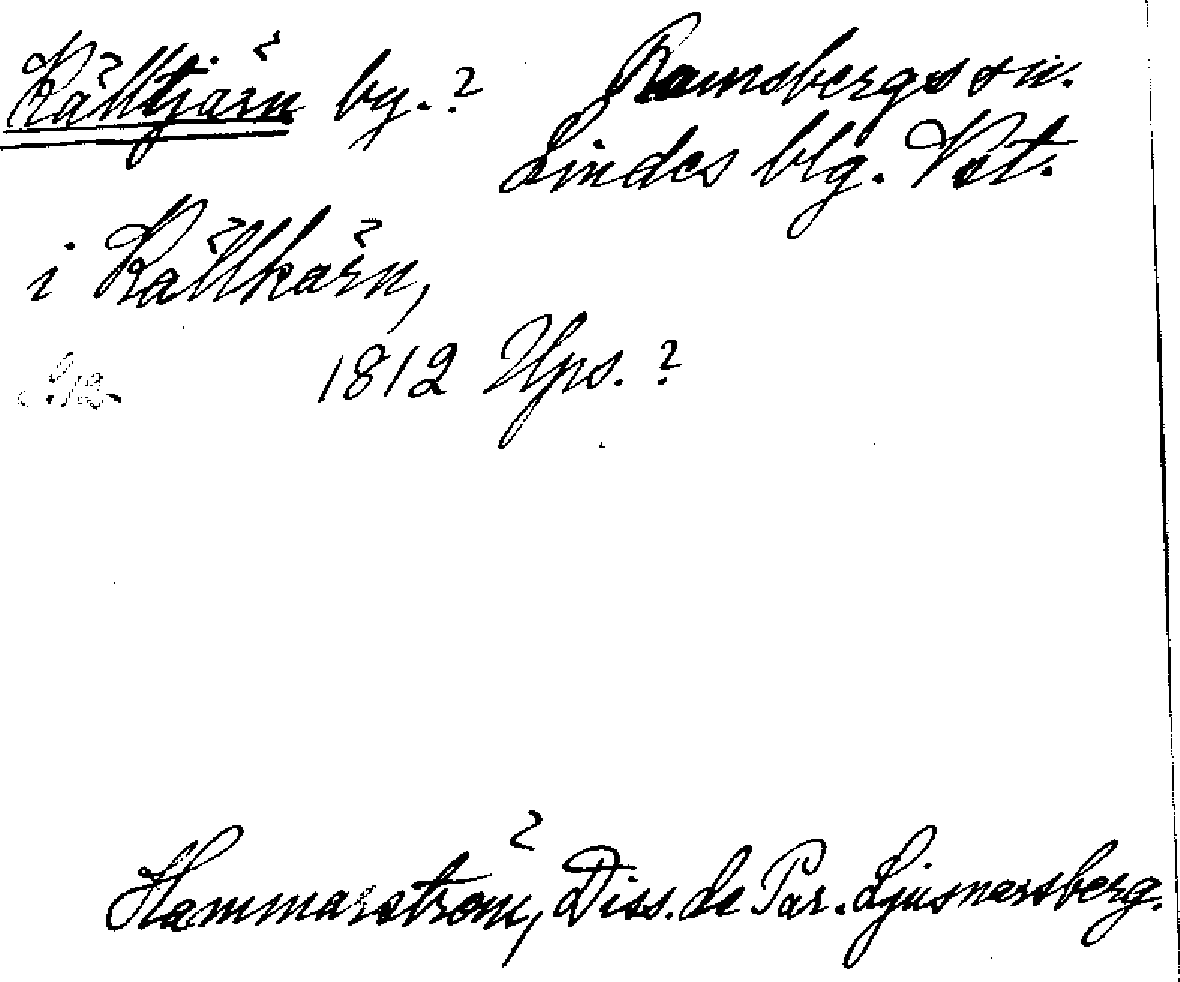 Källtjärn by. ? Ramsbergs sn.
Lindes blg. Vst.
i Källkärn,
1812 Ups. ?
Hammarström, Diss. de Par. Ljusnarsberg.